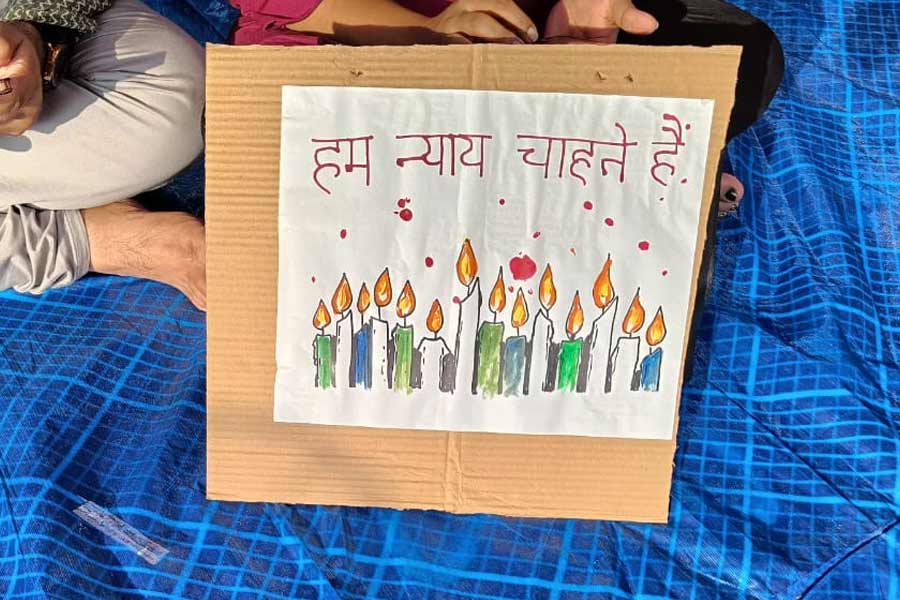 हम न्याय चाहते हैं.